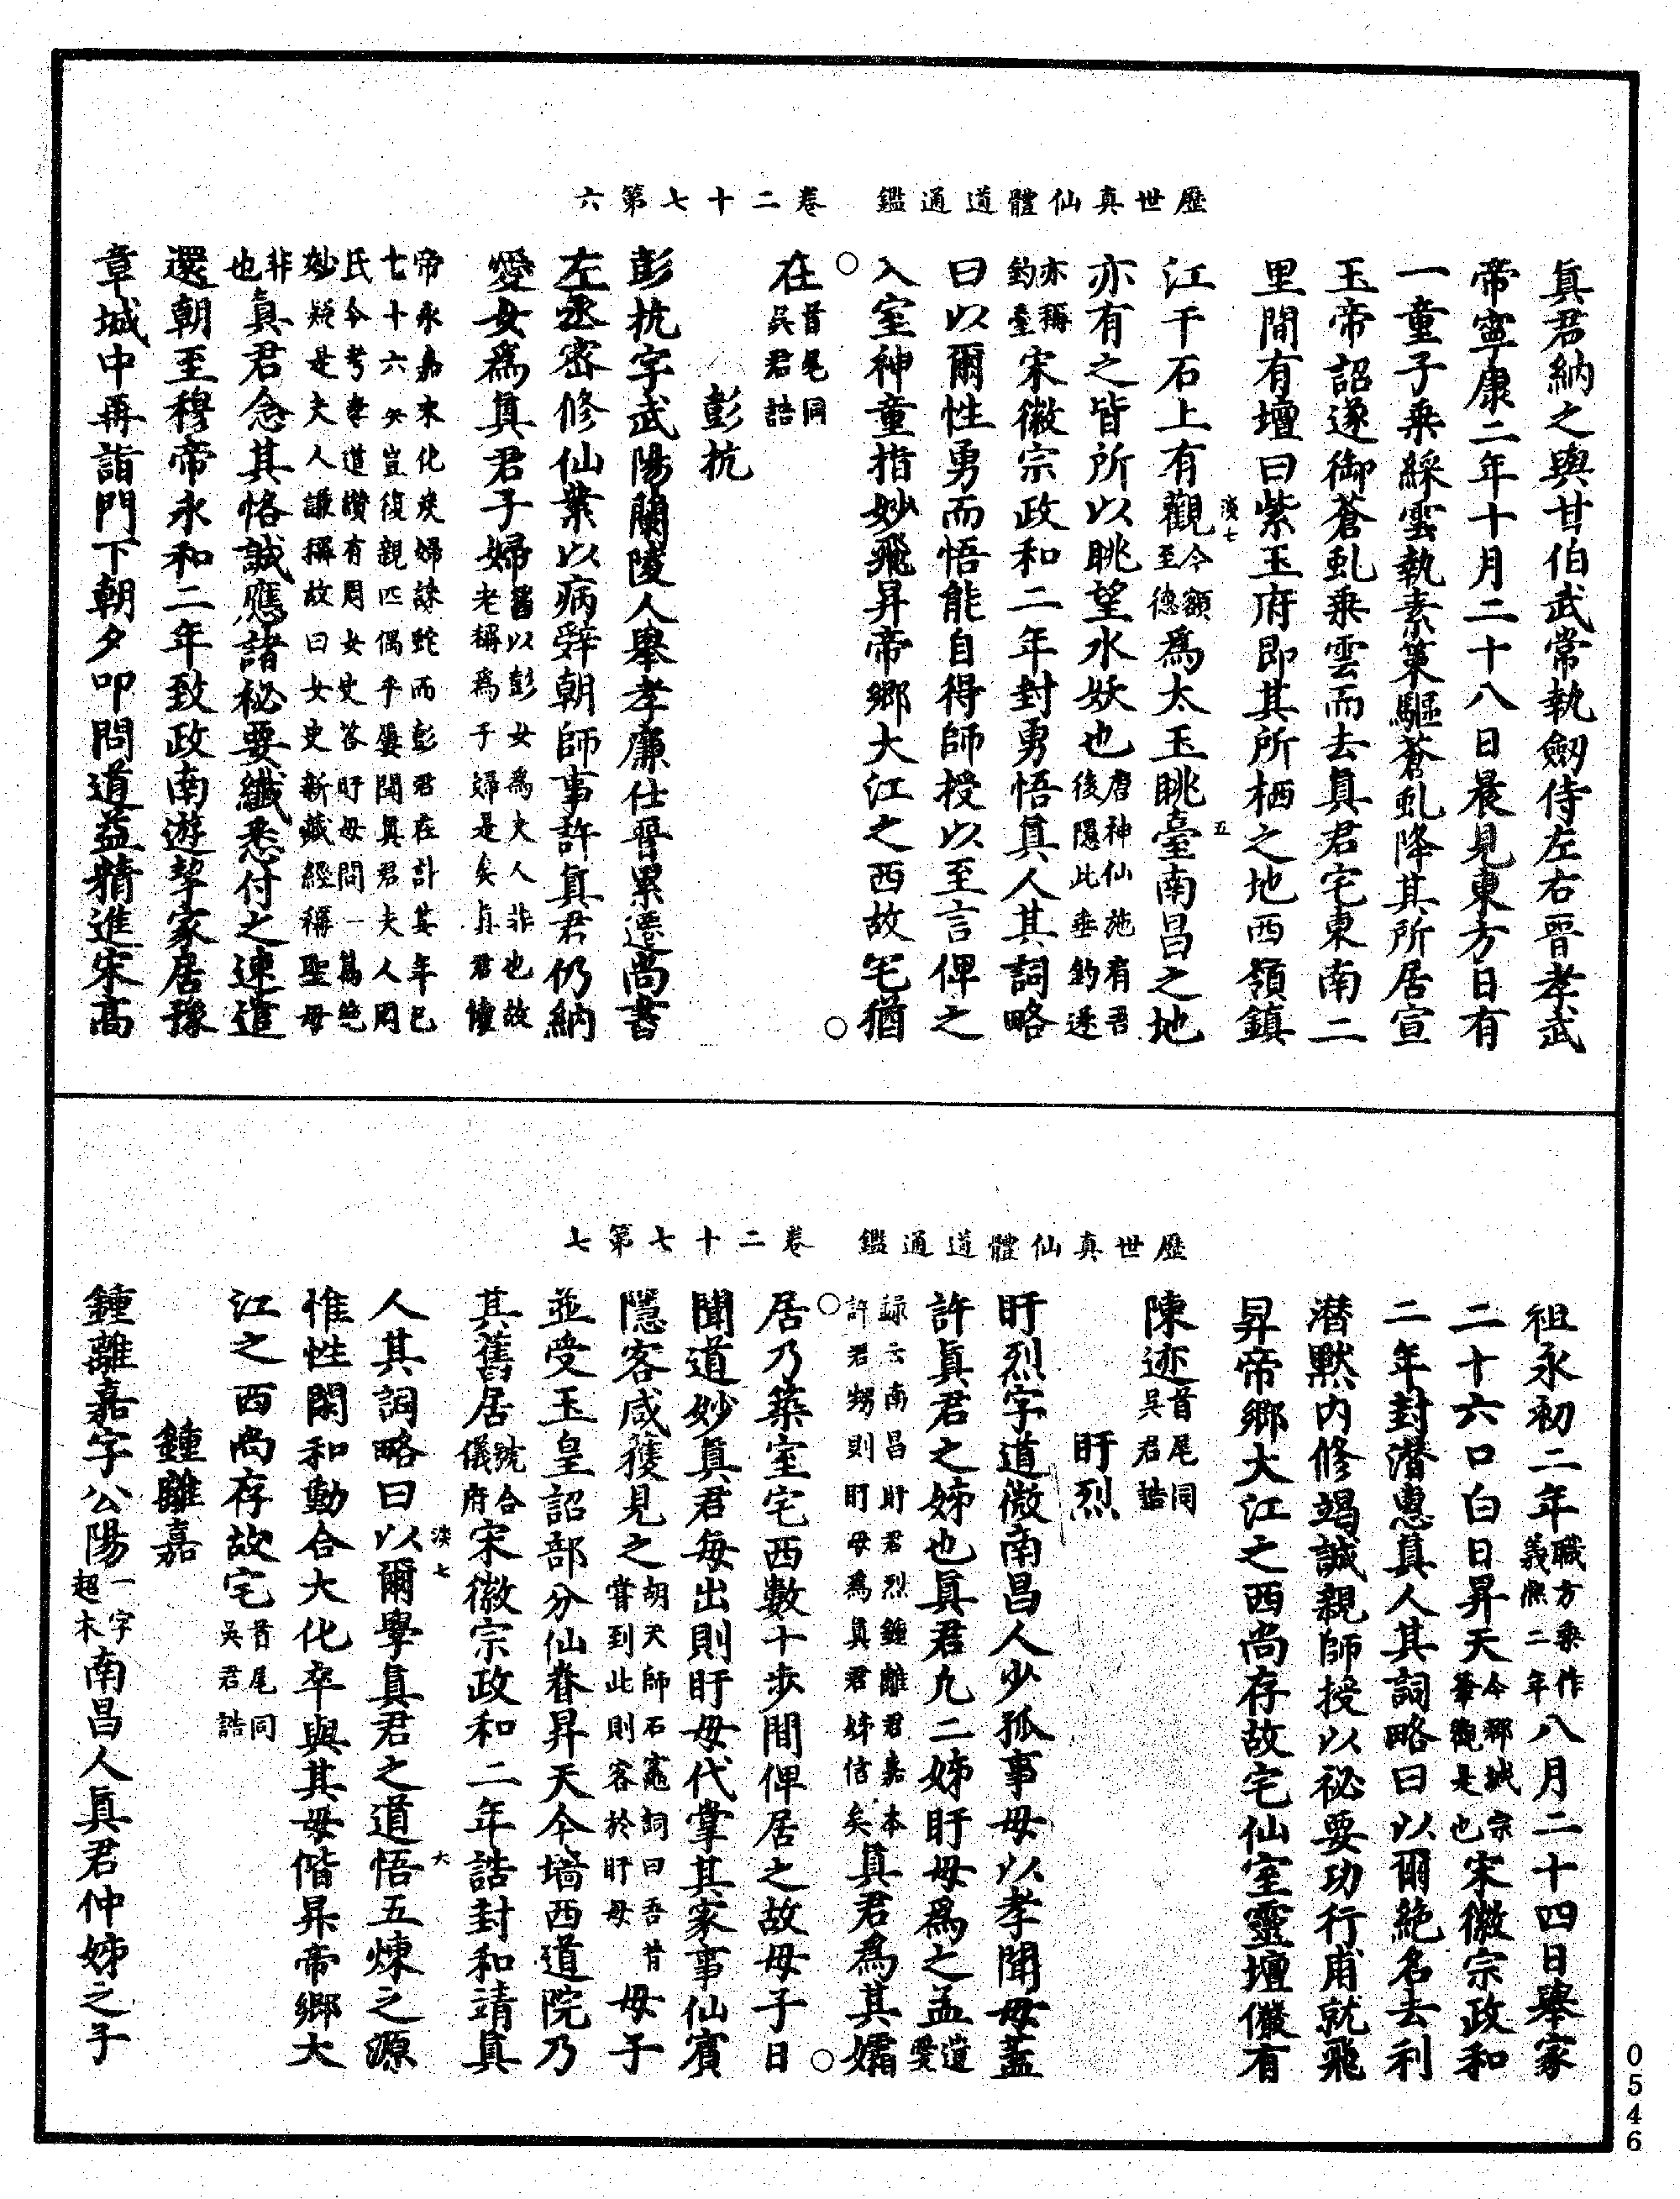 歷世真仙體道通鑑　卷二十七第六
真君納之與甘伯武常執劒侍左右晉孝武
帝寧康二年十月二十八日晨見東方日有
一童子乘綵雲執素策驅蒼虬降其所居宣
玉帝詔遂御蒼虬乘雲而去真君宅東南二
里間有壇曰紫玉府即其所栖之地西嶺鎮
江千石上有觀今額至德為太玉眺臺南昌之地
亦有之皆所以眺望水妖也唐神仙施肩吾後隱此垂釣遂
亦稱釣臺宋徽宗政和二年封勇悟真人其詞略
曰以爾性勇而悟能自得師授以至言俾之
入室神童指妙飛昇帝鄉大江之西故宅猶
在首尾同吳君誥
彭抗
彭抗字武陽蘭陵人舉孝廉仕晉累遷尚書
左丞密修仙業以病辭朝師事許真君仍納
愛女為真君子婦舊以彭女為夫人非也故老稱為子婦是矣真君懷
帝永嘉末化炭婦誅蛇而彭君在計其年已七十六矣豈復親匹偶乎屢聞真君夫人周
氏今考孝道讚有周女史答盱母問一篇絶妙疑是夫人謙稱故曰女史新藏經稱聖母
非也真君念其恪誠應諸秘要纖悉付之速遣
還朝至穆帝永和二年致政南遊挈家居豫
章城中再詣門下朝夕叩問道益精進宋高
歷世真仙體道通鑑　卷二十七第七
祖永初二年職方乘作義熙二年八月二十四日舉家
二十六口白日昇天今郡城宗華觀是也宋徽宗政和
二年封潛惠真人其詞略曰以爾絶名去利
潛默內修竭誠親師授以祕要功行甫就飛
昇帝鄉大江之西尚存故宅仙室靈壇儼有
陳迹首尾同吳君誥
盱烈
盱烈字道微南昌人少孤事母以孝聞母蓋
許真君之姊也真君九二姊盱母為之孟遺愛
録云南昌盱君烈鍾離君嘉本許君甥則盱母為真君姊信矣真君為其孀
居乃築室宅西數十步間俾居之故母子日
聞道妙真君每出則盱母代掌其家事仙賓
隱客咸獲見之胡天師石竈詞曰吾昔嘗到此則客於盱母母子
並受玉皇詔部分仙眷昇天今墻西道院乃
其舊居號合儀府宋徽宗政和二年誥封和靖真
人其詞略曰以爾學真君之道悟五煉之源
惟性閑和動合大化卒與其母偕昇帝鄉大
江之西尚存故宅首尾同吳君誥
鍾離嘉
鍾離嘉字公陽一字超本南昌人真君仲姊之子
淡七
五
淡七
六
0546